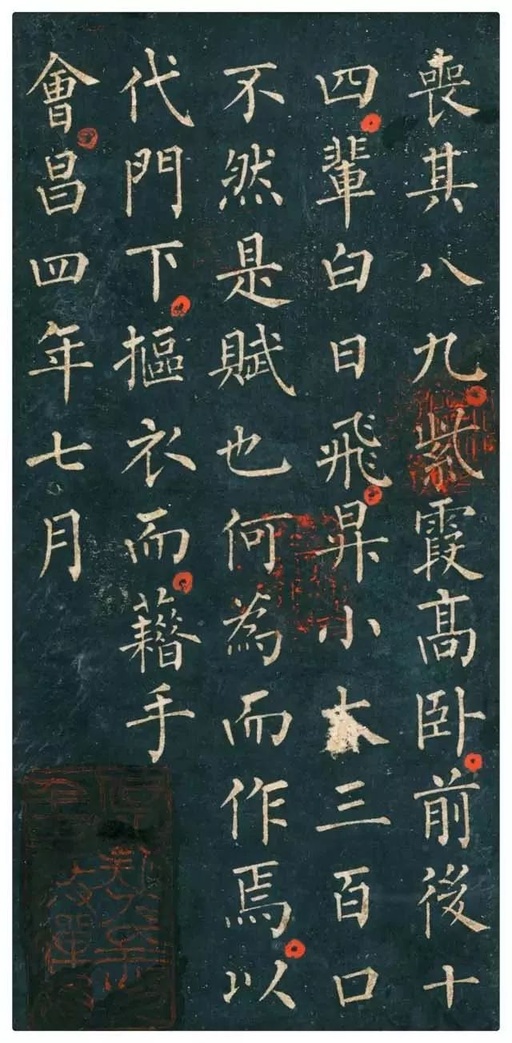 喪其八九紫霞髙卧前後十
四輩白日飛昇小大三百口
不然是賦也何為而作焉以
代門下摳衣而藉手
會昌四年七月